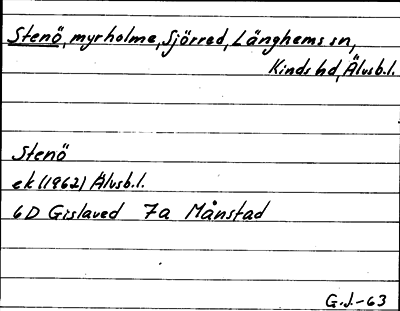 Stenö, myrholme, Sjörred, Länghems sn,
Kinds hd, Älvsb.l.
Stenö
ek (1962) Älvsb.l.
6D Gislaved 7a Månstad
G.J.-63